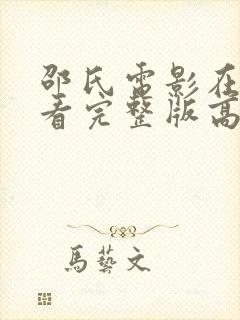 邵氏電影在
看完整版高
馬藝文